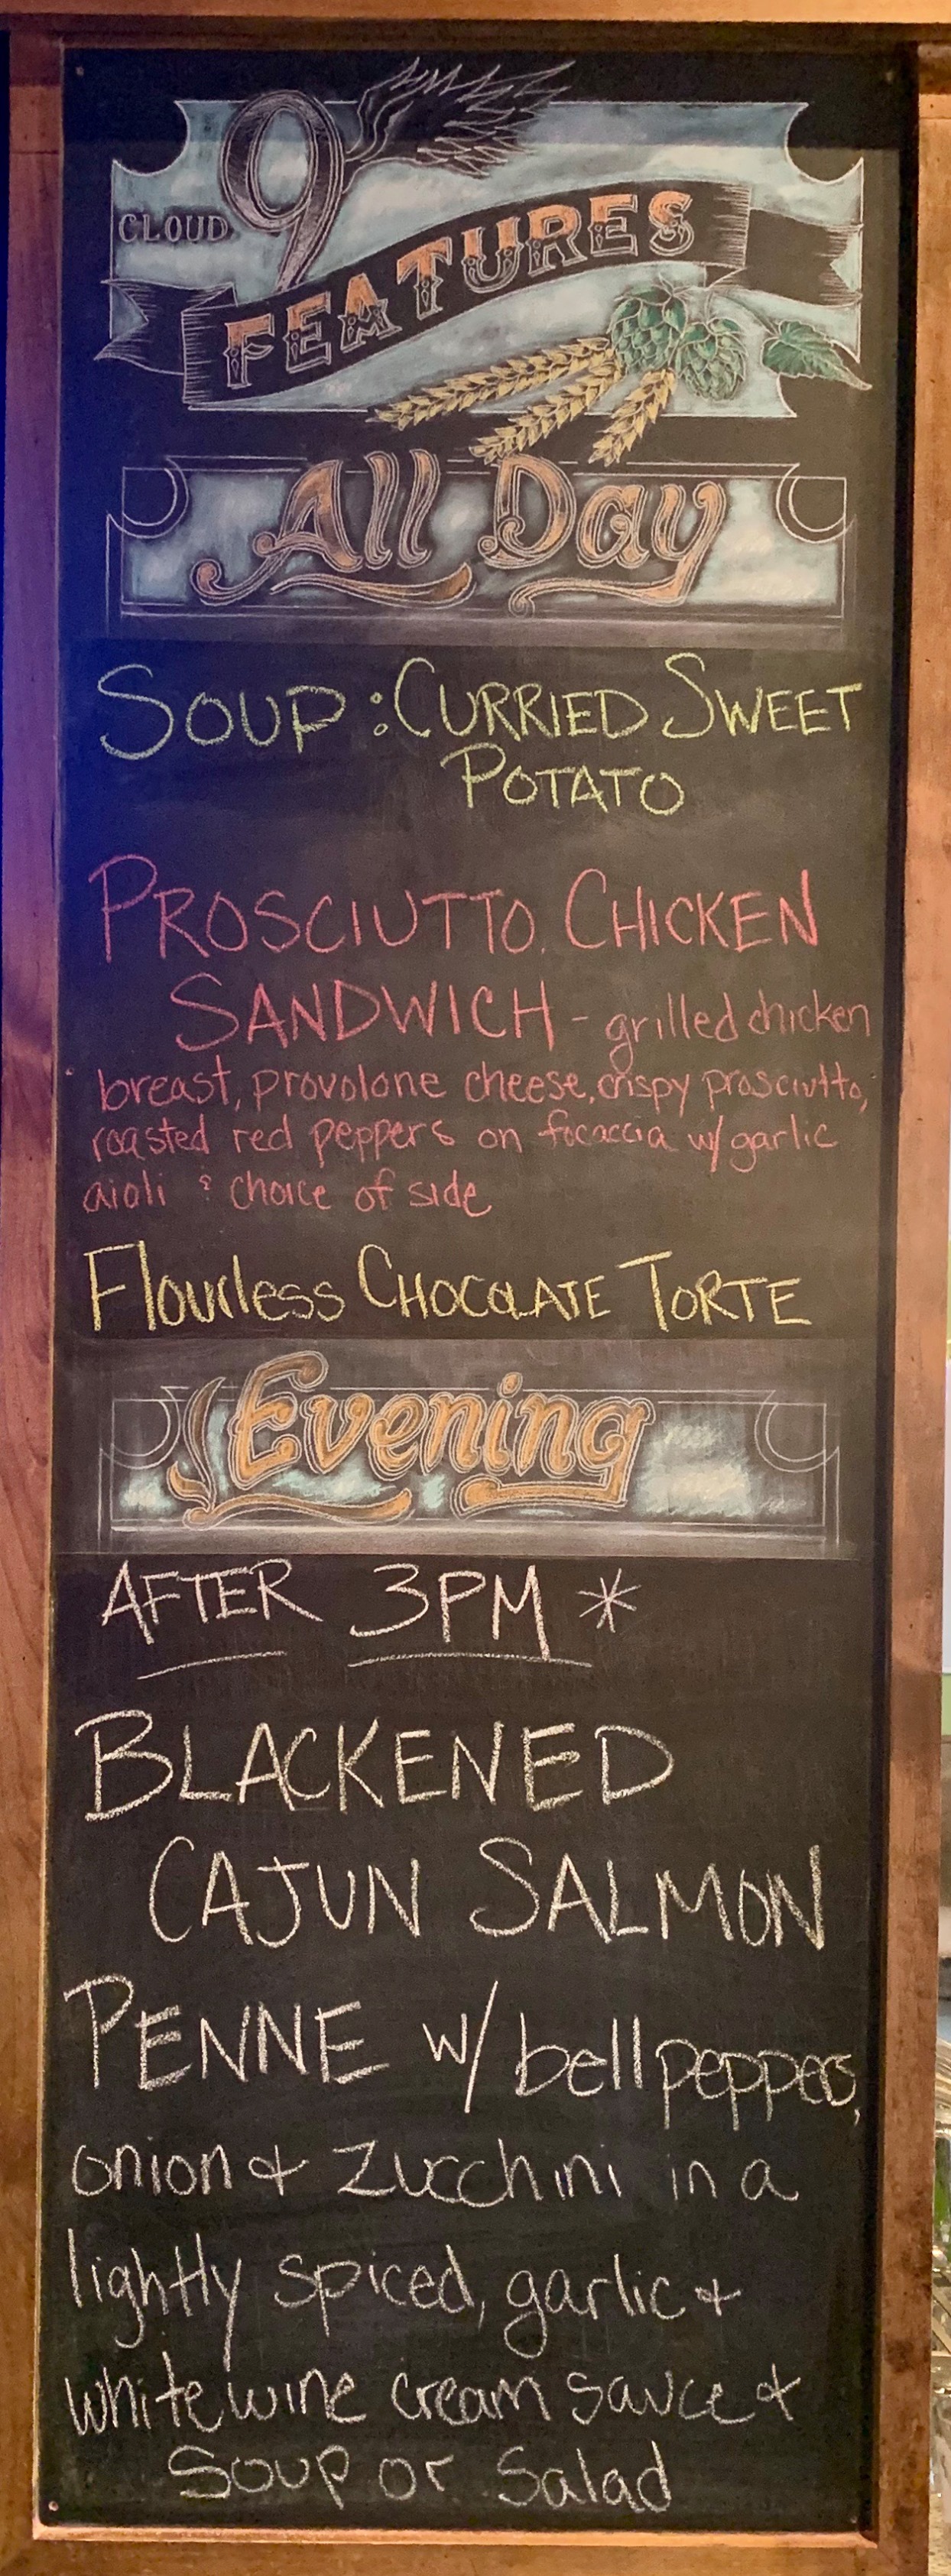 CLOUD 9
FEATURES
All Day
SOUP: CURRIED SWEET
POTATO
PROSCIUTTO CHICKEN
SANDWICH - grilled chicken
breast, provolone cheese, crispy prosciutto,
roasted red peppers on focaccia w/ garlic
aioli & choice of side
Flourless CHOCOLATE TORTE
Evening
AFTER 3PM *
BLACKENED
CAJUN SALMON
PENNE w/ bell peppers,
onion & zucchini in a
lightly spiced, garlic &
white wine cream sauce &
Soup or Salad